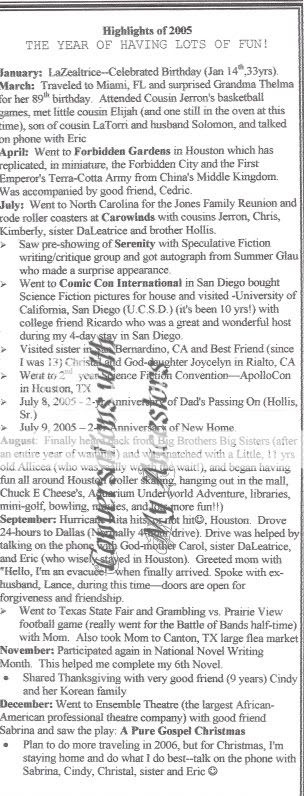 Highlights of 2005
THE YEAR OF HAVING LOTS OF FUN!
January: LaZealtrice--Celebrated Birthday (Jan 14th,33yrs).
March: Traveled to Miami, FL and surprised Grandma Thelma
for her 89th birthday. Attended Cousin Jerron's basketball
games, met little cousin Elijah (and one still in the oven at this
time), son of cousin LaTorri and husband Solomon, and talked
on phone with Eric
April: Went to Forbidden Gardens in Houston which has
replicated, in miniature, the Forbidden City and the First
Emperor's Terra-Cotta Army from China's Middle Kingdom.
Was accompanied by good friend, Cedric.
July: Went to North Carolina for the Jones Family Reunion and
rode roller coasters at Carowinds with cousins Jerron, Chris,
Kimberly, sister DaLeatrice and brother Hollis.
➢ Saw pre-showing of Serenity with Speculative Fiction
writing/critique group and got autograph from Summer Glau
who made a surprise appearance.
➢ Went to Comic Con International in San Diego bought
Science Fiction pictures for house and visited -University of
California, San Diego (U.C.S.D.) (it's been 10 yrs!) with
college friend Ricardo who was a great and wonderful host
during my 4-day stay in San Diego.
➢ Visited sister in Bernardino, CA and Best Friend (since
I was 13) Christal and God-daughter Joycelyn in Rialto, CA
➢ Went to 2nd year Science Fiction Convention—ApolloCon
in Houston, TX
➢ July 8, 2005 - 2nd Anniversary of Dad's Passing On (Hollis,
Sr.)
➢ July 9, 2005 – 2nd Anniversary of New Home
August: Finally heard back from Big Brothers Big Sisters (after
an entire year of waiting) and was matched with a Little, 11 yrs
old Allicea (who was really worth the wait!), and began having
fun all around Houston (roller skating, hanging out in the mall,
Chuck E Cheese's, Aquarium Underworld Adventure, libraries,
mini-golf, bowling, movies, and lots more fun!!)
September: Hurricane Rita hits, or not hit☺, Houston. Drove
24-hours to Dallas (Normally 4 hour drive). Drive was helped by
talking on the phone with God-mother Carol, sister DaLeatrice,
and Eric (who wisely stayed in Houston). Greeted mom with
"Hello, I'm an evacuee!" when finally arrived. Spoke with ex-
husband, Lance, during this time—doors are open for
forgiveness and friendship.
➢ Went to Texas State Fair and Grambling vs. Prairie View
football game (really went for the Battle of Bands half-time)
with Mom. Also took Mom to Canton, TX large flea market
November: Participated again in National Novel Writing
Month. This helped me complete my 6th Novel.
• Shared Thanksgiving with very good friend (9 years) Cindy
and her Korean family
December: Went to Ensemble Theatre (the largest African-
American professional theatre company) with good friend
Sabrina and saw the play: A Pure Gospel Christmas
• Plan to do more traveling in 2006, but for Christmas, I'm
staying home and do what I do best--talk on the phone with
Sabrina, Cindy, Christal, sister and Eric ☺